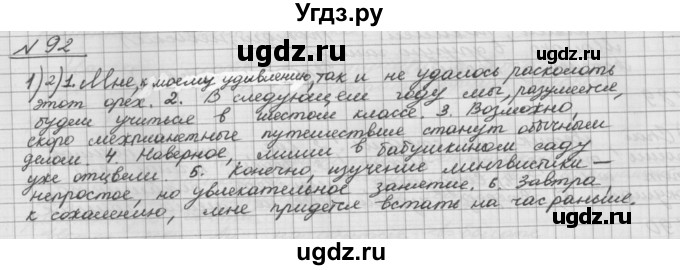 Угдз.ру
№ 92
gudz.ru
gudz.ru
1) 2) 1. Мне, к моему удивлению, так и не удалось расколоть
этот орех. 2. В следующем году мы, разумеется,
будем учиться в шестом классе. 3. Возможно,
скоро межпланетные путешествие станут обычным
делом. 4. Наверное, лилии в бабушкином саду
уже отцвели 5. Конечно, изучение лингвистики —
непростое, но увлекательное занятие. 6. Завтра,
к сожалению, мне придётся встать на час раньше.
gudz.ru
gudz.ru
gudz.ru